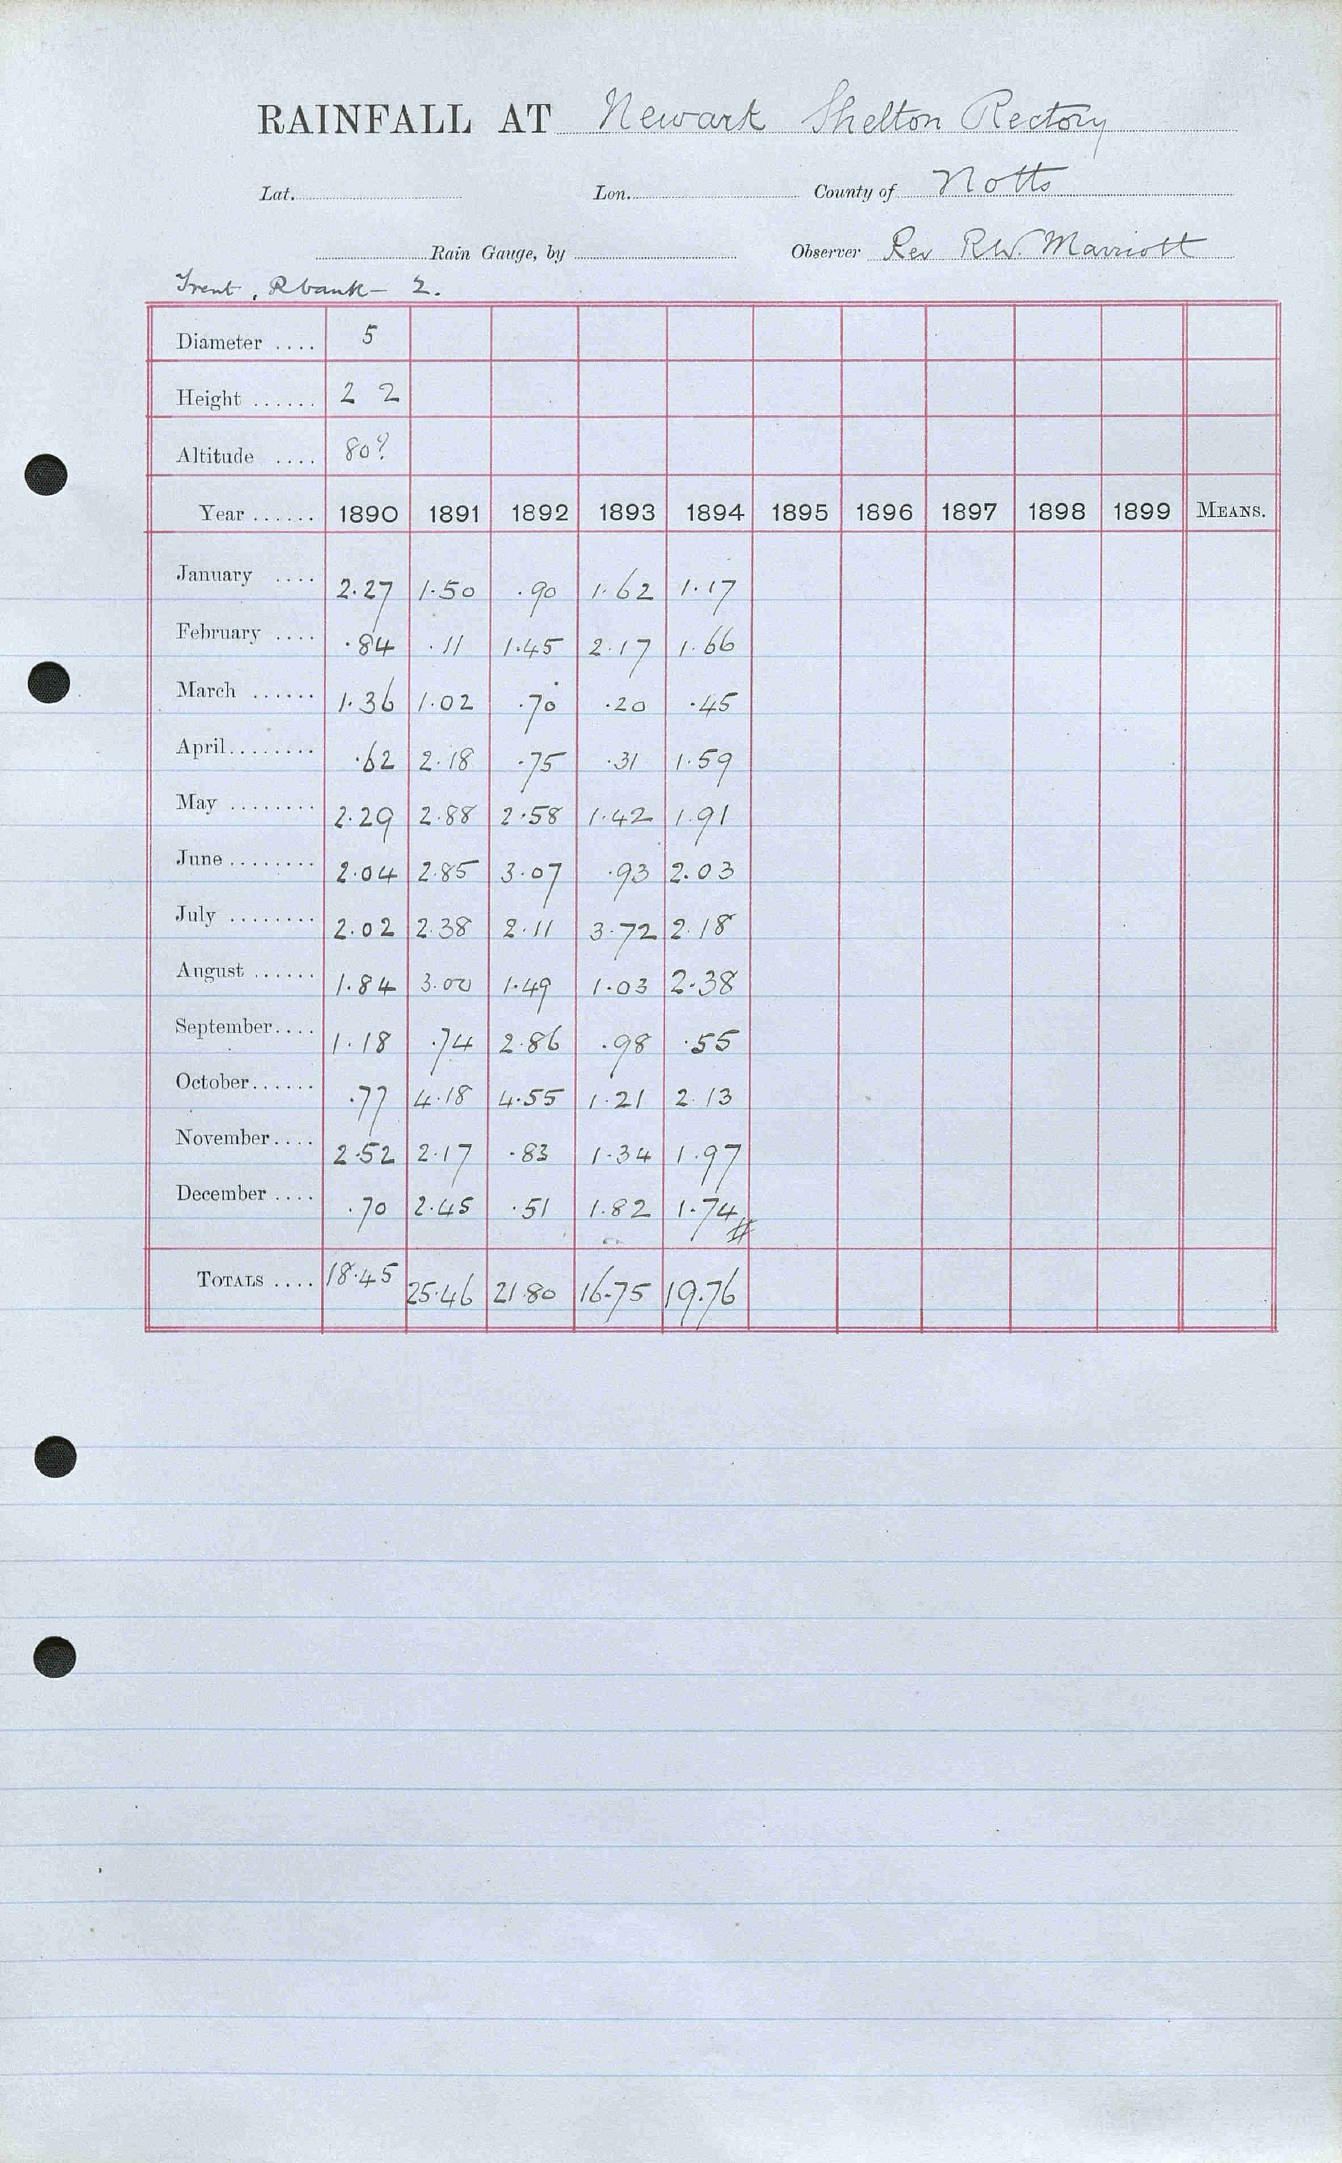 RAINFALL AT Newark Shelton Rectory
Lat. Lon. County of Notts
Rain Gauge, by Observer Rev R.W. Marriott
Trent, R bank - 2.
Diameter .... 5
Height ...... 2 2
Altitude .... 80?
Year ...... 1890 1891 1892 1893 1894 1895 1896 1897 1898 1899 MEANS.
January .... 2.27 1.50 .90 1.62 1.17
February .... .84 .11 1.45 2.17 1.66
March ...... 1.36 1.02 .70 .20 .45
April........ .62 2.18 .75 .31 1.59
May ........ 2.29 2.88 2.58 1.42 1.91
June ........ 2.04 2.85 3.07 .93 2.03
July ........ 2.02 2.38 2.11 3.72 2.18
August ...... 1.84 3.00 1.49 1.03 2.38
September.... 1.18 .74 2.86 .98 .55
October...... .77 4.18 4.55 1.21 2.13
November.... 2.52 2.17 .83 1.34 1.97
December .... .70 2.45 .51 1.82 1.74 #
TOTALS .... 18.45 25.46 21.80 16.75 19.76